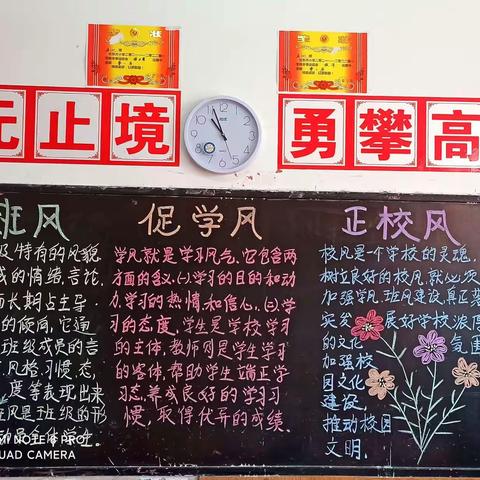 奖状
奖状
无止境
勇攀高
班风
及特有的风貌
成的情绪、言论、
而长期占主导
的倾向,它通
班级成员的言
风格、习惯、态
度等表现出来
班风是班级的形
促学风
学风就是学习风气,它包含两
方面的含义,(一).学习的目的和动
力、学习的热情和信心,(二).学
习的态度,学生是学校学习
的主体,教师则是学生学习
的客体,帮助学生端正学
习态,养成良好的学习习
惯,取得优异的成绩.
正校风
校风是一个学校的灵魂,
树立良好的校风就必须
加强学风、班风建设,真正落
实发展好学校浓厚
的文化氛围
加强校
园文化
建设,
推动校园
文明.
MI NOTE 8 PRO
QUAD CAMERA